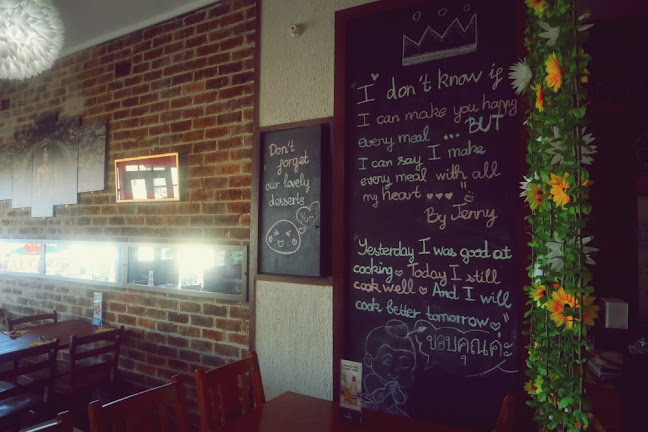 Don't
forget
our lovely
desserts
Yum!
"I don't know if
I can make you happy
every meal ... BUT
I can say I make
every meal with all
my heart ... "
By Jenny
"Yesterday I was good at
cooking Today I still
cook well And I will
cook better tomorrow "
ขอบคุณค่ะ